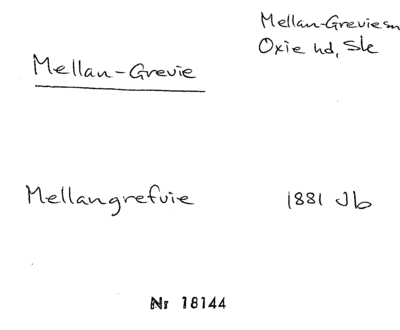 Mellan-Grevie sn
Oxie hd, Sk
Mellan-Grevie
Mellangrefvie 1881 Jb
Nr 18144